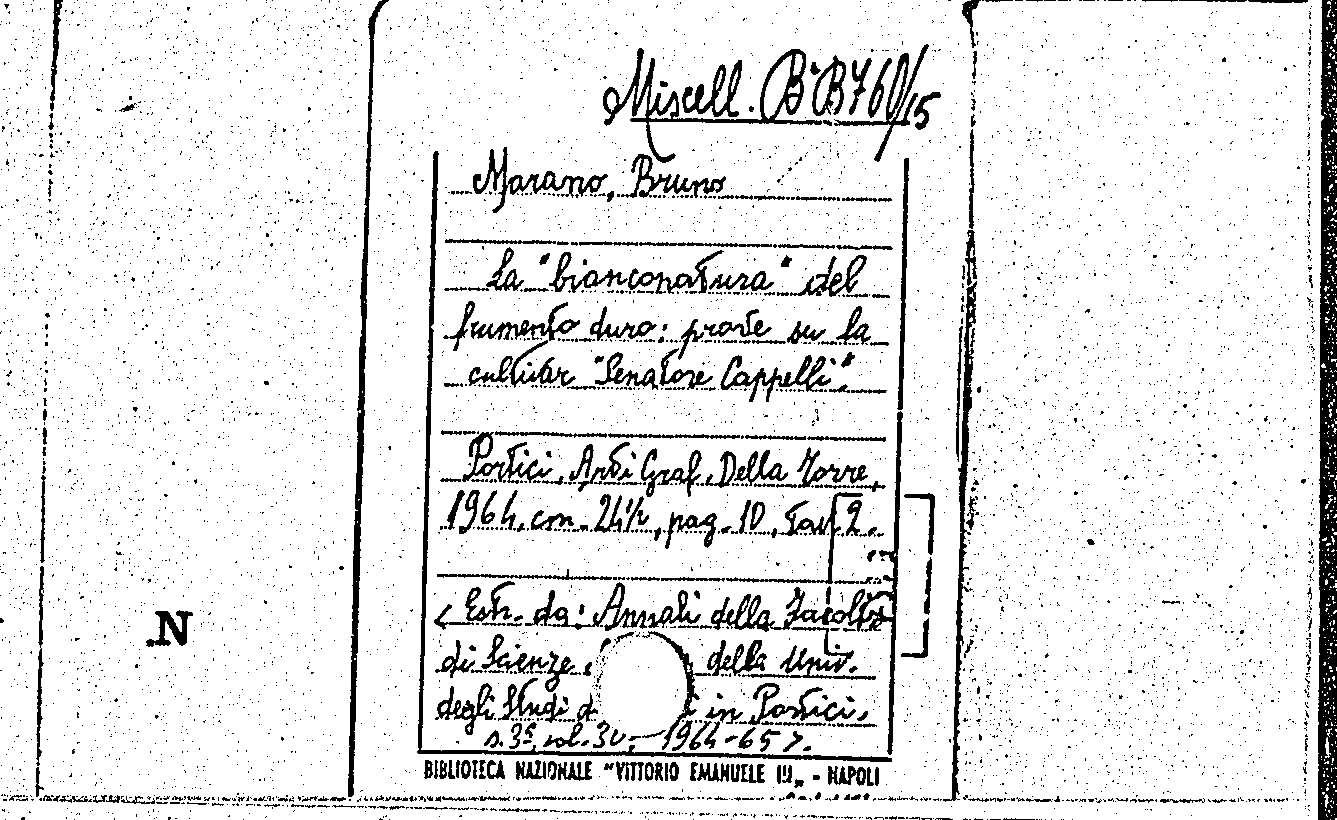 Miscell. B*B760/15
Marano, Bruno
La "bianconatura" del
frumento duro: prove su la
cultivar "Senatore Cappelli".
Portici, Arti Graf. Della Torre,
1964, cm. 24½, pag. 10, tav. 2.
< Estr. da: Annali della Facoltà
di Scienze della Univ.
degli Studi d i in Portici,
s. 3ª, vol. 30, 1964-65 >.
BIBLIOTECA NAZIONALE "VITTORIO EMANUELE III„ - NAPOLI
.N